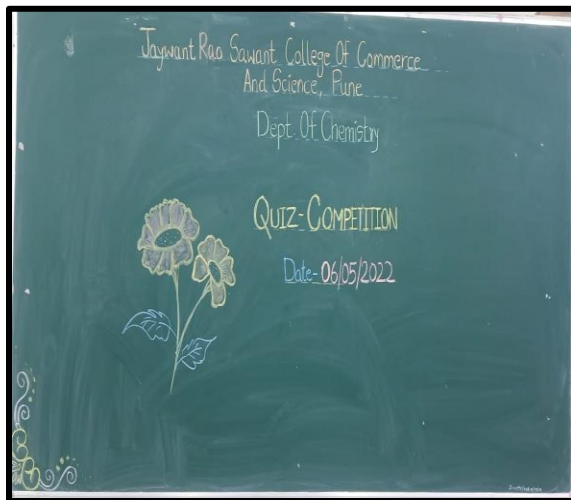 Jaywant Rao Sawant College Of Commerce
And Science, Pune
Dept. Of Chemistry
QUIZ-COMPETITION
Date-06/05/2022